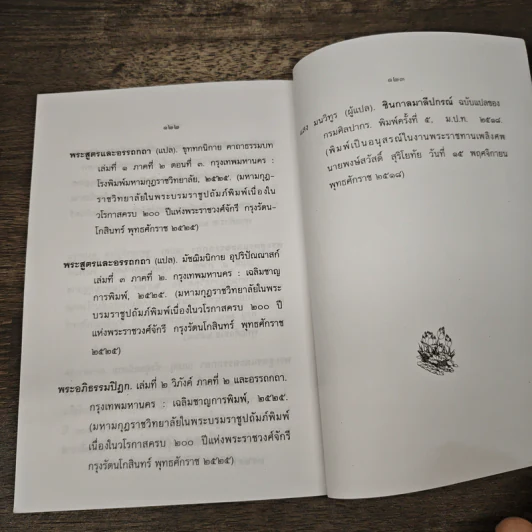 ๑๒๒
พระสูตรและอรรถกถา (แปล). ขุททกนิกาย คาถาธรรมบท
เล่มที่ ๑ ภาคที่ ๒ ตอนที่ ๓. กรุงเทพมหานคร :
โรงพิมพ์มหามกุฏราชวิทยาลัย, ๒๕๒๕. (มหามกุฏ-
ราชวิทยาลัยในพระบรมราชูปถัมภ์พิมพ์เนื่องใน
วโรกาสครบ ๒๐๐ ปีแห่งพระราชวงศ์จักรี กรุงรัตน-
โกสินทร์ พุทธศักราช ๒๕๒๕)
พระสูตรและอรรถกถา (แปล). มัชฌิมนิกาย อุปริปัณณาสก์
เล่มที่ ๓ ภาคที่ ๒. กรุงเทพมหานคร : เฉลิมชาญ
การพิมพ์, ๒๕๒๕. (มหามกุฏราชวิทยาลัยในพระ
บรมราชูปถัมภ์พิมพ์เนื่องในวโรกาสครบ ๒๐๐ ปี
แห่งพระราชวงศ์จักรี กรุงรัตนโกสินทร์ พุทธศักราช
๒๕๒๕)
พระอภิธรรมปิฎก. เล่มที่ ๒ วิภังค์ ภาคที่ ๒ และอรรถกถา.
กรุงเทพมหานคร : เฉลิมชาญการพิมพ์, ๒๕๒๕.
(มหามกุฏราชวิทยาลัยในพระบรมราชูปถัมภ์พิมพ์
เนื่องในวโรกาสครบ ๒๐๐ ปีแห่งพระราชวงศ์จักรี
กรุงรัตนโกสินทร์ พุทธศักราช ๒๕๒๕)
๑๒๓
แสง มนวิทูร (ผู้แปล). ชินกาลมาลีปกรณ์ ฉบับแปลของ
กรมศิลปากร. พิมพ์ครั้งที่ ๕, ม.ป.ท. ๒๕๑๘.
(พิมพ์เป็นอนุสรณ์ในงานพระราชทานเพลิงศพ
นายพงษ์สวัสดิ์ สุริโยทัย วันที่ ๑๕ พฤศจิกายน
พุทธศักราช ๒๕๑๘)